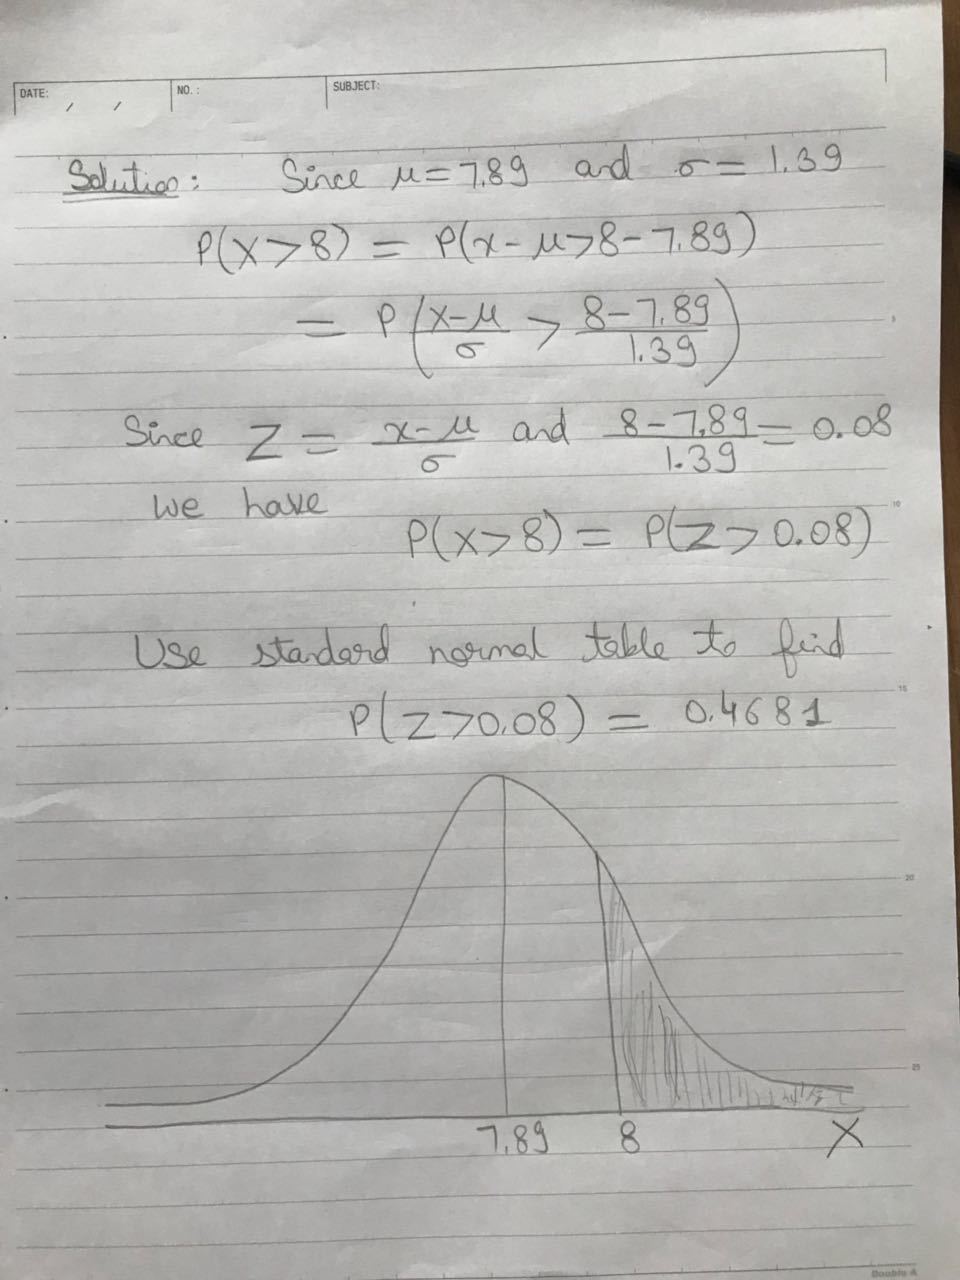 DATE: / / NO. : SUBJECT:
Solution: Since μ = 7.89 and σ = 1.39
P(X > 8) = P(x - μ > 8 - 7.89)
= P(x - μ / σ > 8 - 7.89 / 1.39)
Since Z = x - μ / σ and 8 - 7.89 / 1.39 = 0.08
we have
10
P(X > 8) = P(Z > 0.08)
Use standard normal table to find
15
P(Z > 0.08) = 0.4681
20
25
7.89 8 X
Double A